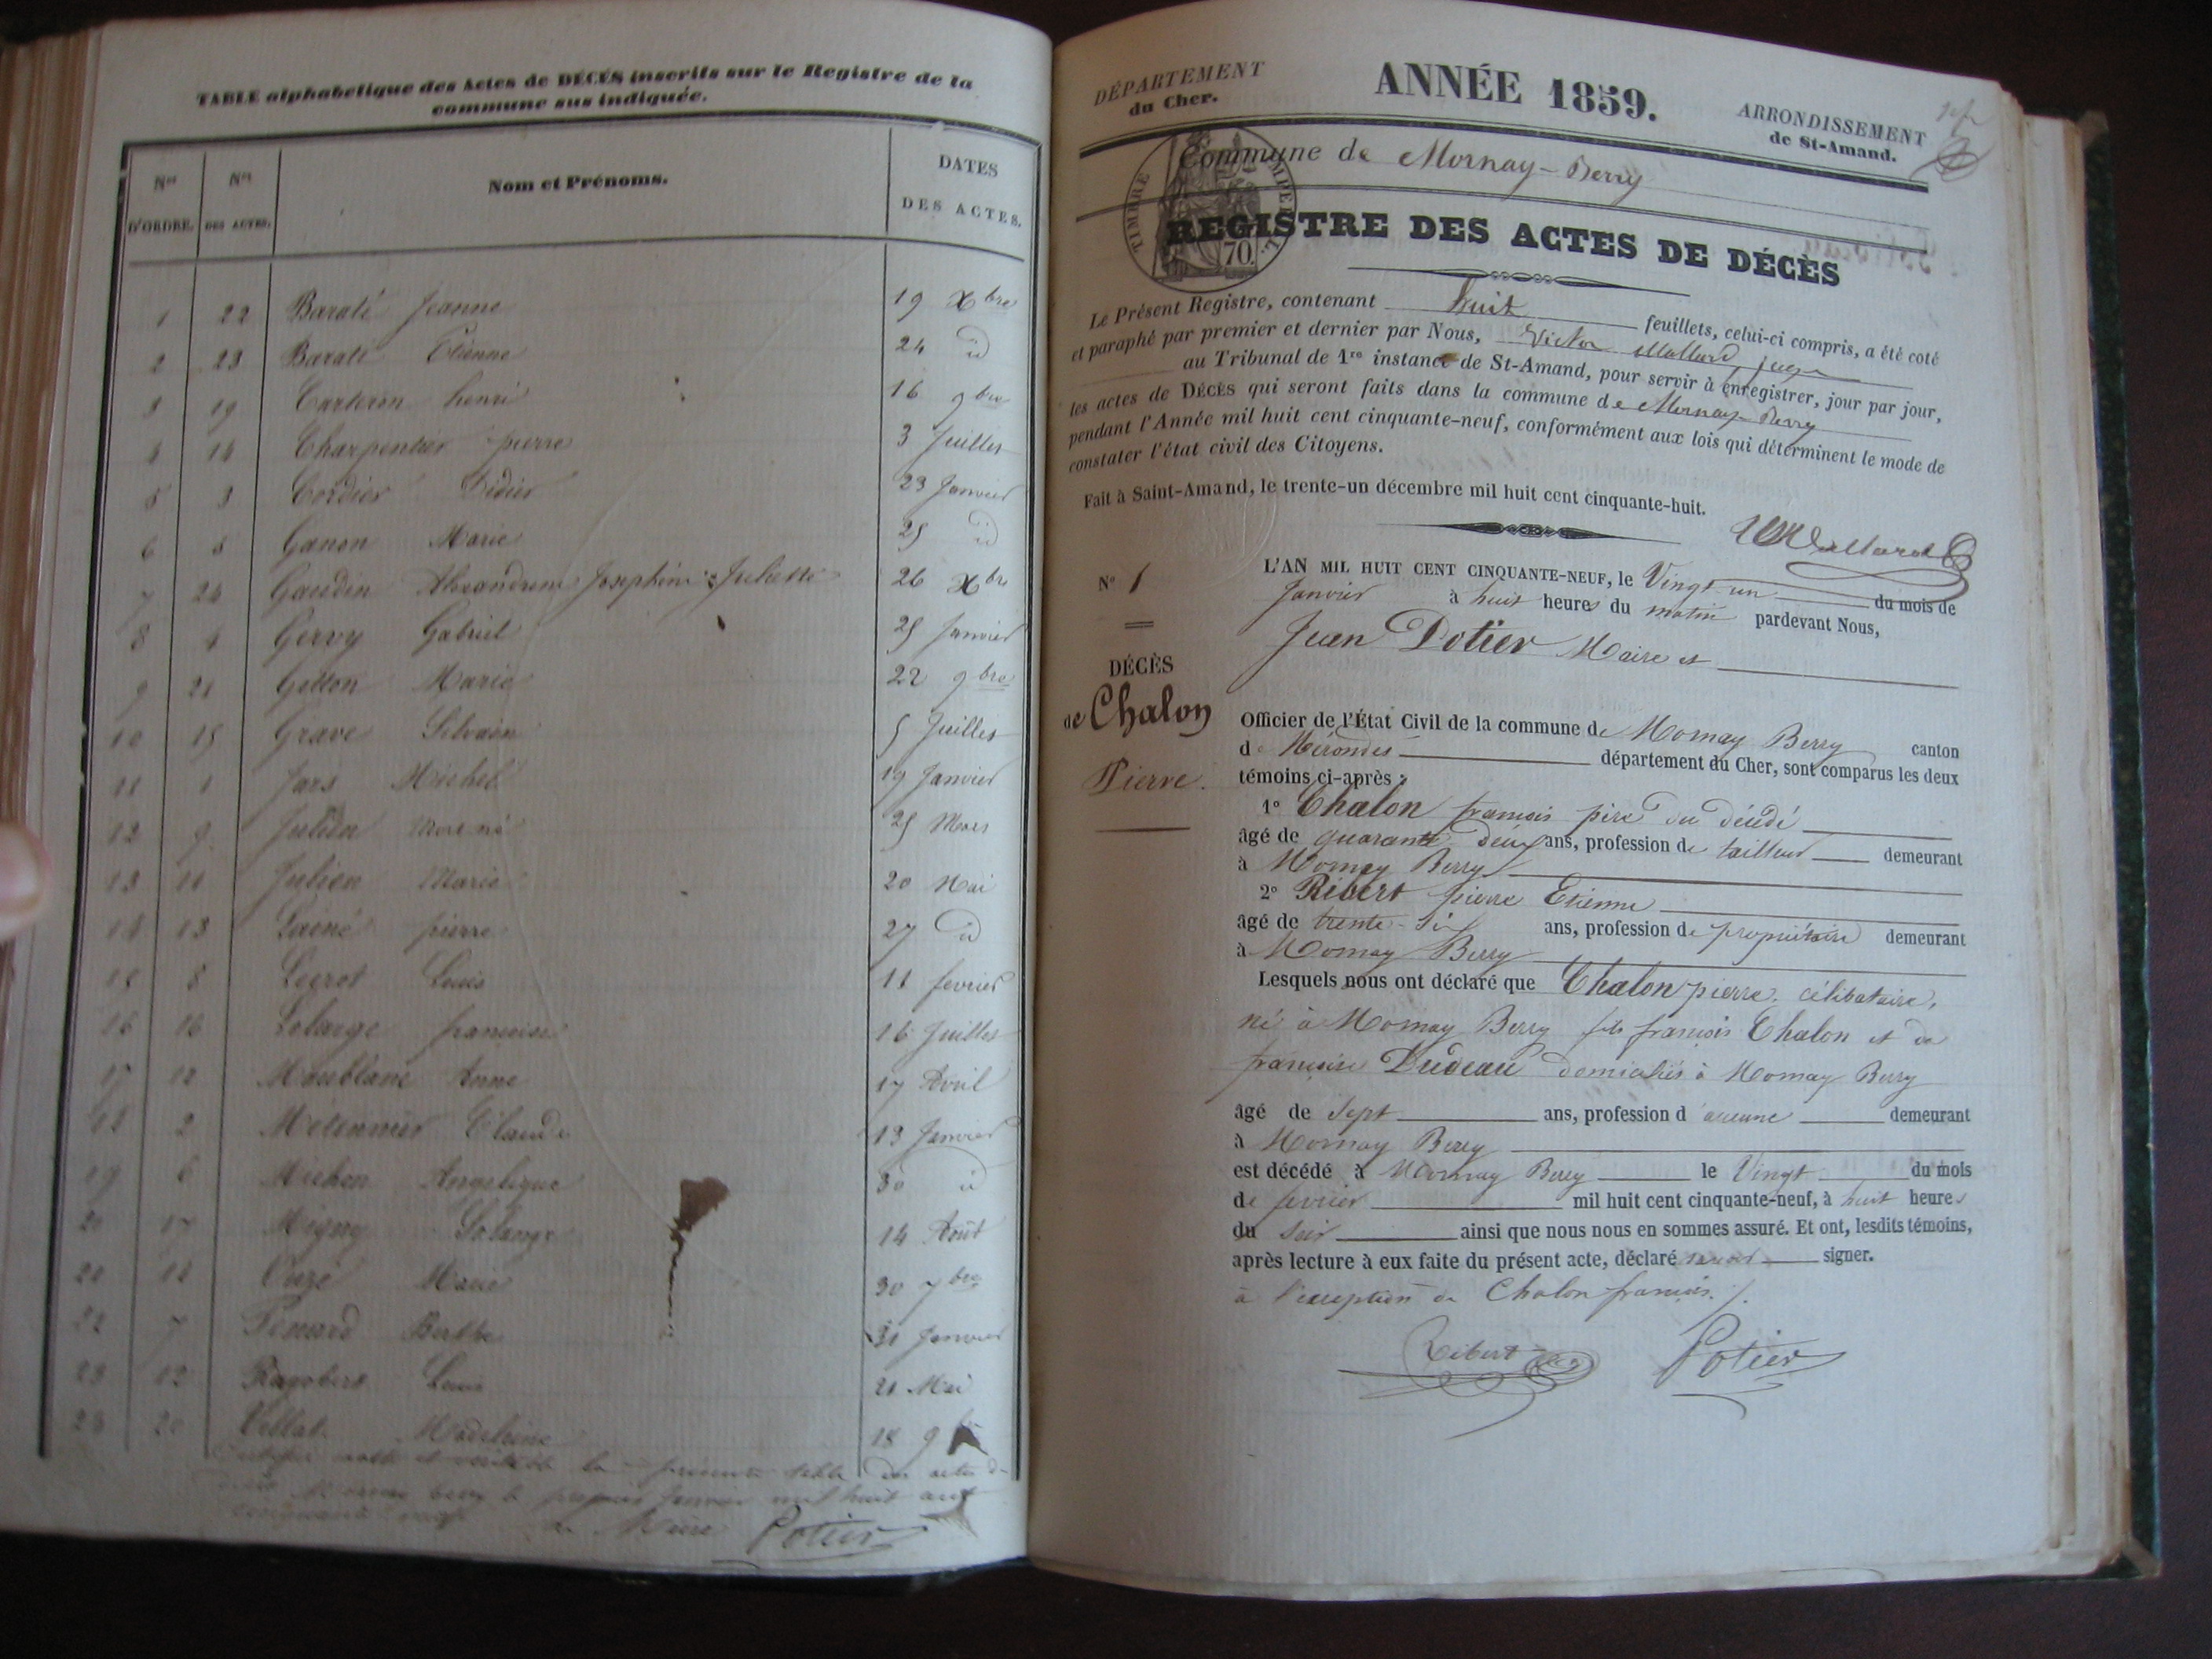 TABLE alphabétique des Actes de DÉCÈS inscrits sur le Registre de la
commune sus indiquée.
Nos D'ORDRE. Nos DES ACTES. Nom et Prénoms. DATES DES ACTES.
1 22 Barate Jeanne 19 Xbre
2 23 Barate Etienne 24 id
3 19 henri 16 9bre
4 14 Charpentier pierre 3 Juillet
5 3 Cordier Didier 23 Janvier
6 5 Ganon Marie 25 id
7 24 Gaudin Alexandrine Josephine Juliette 26 Xbre
8 4 Gervy Gabriel 25 Janvier
9 21 Getton Marie 22 9bre
10 15 Grave Silvain 5 Juillet
11 1 Jars Michel 19 Janvier
12 9 Julien Mort né 25 Mars
13 11 Julien Marie 20 Mai
14 13 Lainé pierre 27 id
15 8 Louis 11 fevrier
16 16 Lelarge francoise 16 Juillet
17 Maublanc Anne 17 Avril
18 2 Claude 19 Janvier
19 6 Michon Angelique 30 id
20 17 Migny Solange 14 Août
21 18 Marie 30 7bre
22 7 Berthe 31 Janvier
23 12 Ragobert Louis 21 Mai
24 20 Madeleine 18
la présente table des actes de
mil huit cent
Le Maire Potier
DÉPARTEMENT
du Cher.
ANNÉE 1859.
ARRONDISSEMENT
de St-Amand.
Commune de Mornay-Berry
TIMBRE IMPERIAL. 70.
REGISTRE DES ACTES DE DÉCÈS
Le Présent Registre, contenant huit feuillets, celui-ci compris, a été coté
et paraphé par premier et dernier par Nous, Victor Mallard, juge
au Tribunal de 1re instance de St-Amand, pour servir à enregistrer, jour par jour,
les actes de DÉCÈS qui seront faits dans la commune de Mornay Berry
pendant l'Année mil huit cent cinquante-neuf, conformément aux lois qui déterminent le mode de
constater l'état civil des Citoyens.
Fait à Saint-Amand, le trente-un décembre mil huit cent cinquante-huit.
Mallard
No 1
DÉCÈS
de Chalon
Pierre.
L'AN MIL HUIT CENT CINQUANTE-NEUF, le Vingt un du mois de
Janvier à huit heures du matin pardevant Nous,
Jean Potier Maire et
Officier de l'État Civil de la commune de Mornay Berry canton
de Nérondes département du Cher, sont comparus les deux
témoins ci-après :
1° Chalon francois père du décédé
âgé de quarante deux ans, profession de tailleur demeurant
à Mornay Berry
2° Ribert pierre Etienne
âgé de trente-six ans, profession de propriétaire demeurant
à Mornay Berry
Lesquels nous ont déclaré que Chalon pierre, célibataire,
né à Mornay Berry fils francois Chalon et de
francoise Dudeau domiciliés à Mornay Berry
âgé de Sept ans, profession d'aucune demeurant
à Mornay Berry
est décédé à Mornay Berry le Vingt du mois
de fevrier mil huit cent cinquante-neuf, à huit heures
du Soir ainsi que nous nous en sommes assuré. Et ont, lesdits témoins,
après lecture à eux faite du présent acte, déclaré savoir signer.
à l'exception de Chalon francois ./.
Ribert Potier